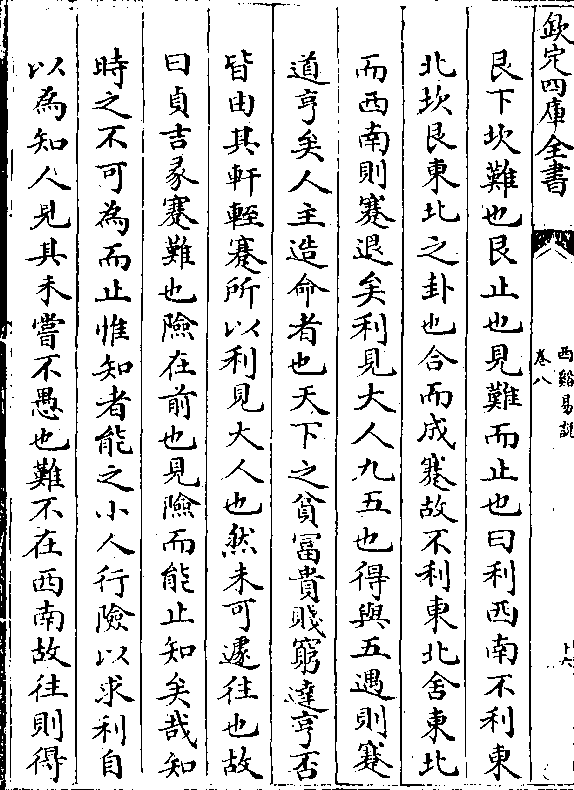 欽定四庫全書
西谿易說
卷八
艮下坎難也艮止也見難而止也曰利西南不利東
北坎艮東北之卦也合而成蹇故不利東北舍東北
而西南則蹇退矣利見大人九五也得與五遇則蹇
道亨矣人主造命者也天下之貧富貴賤窮達亨否
皆由其軒輊蹇所以利見大人也然未可遽往也故
曰貞吉彖蹇難也險在前也見險而能止知矣哉知
時之不可為而止惟知者能之小人行險以求利自
以為知人見其未嘗不愚也難不在西南故往則得